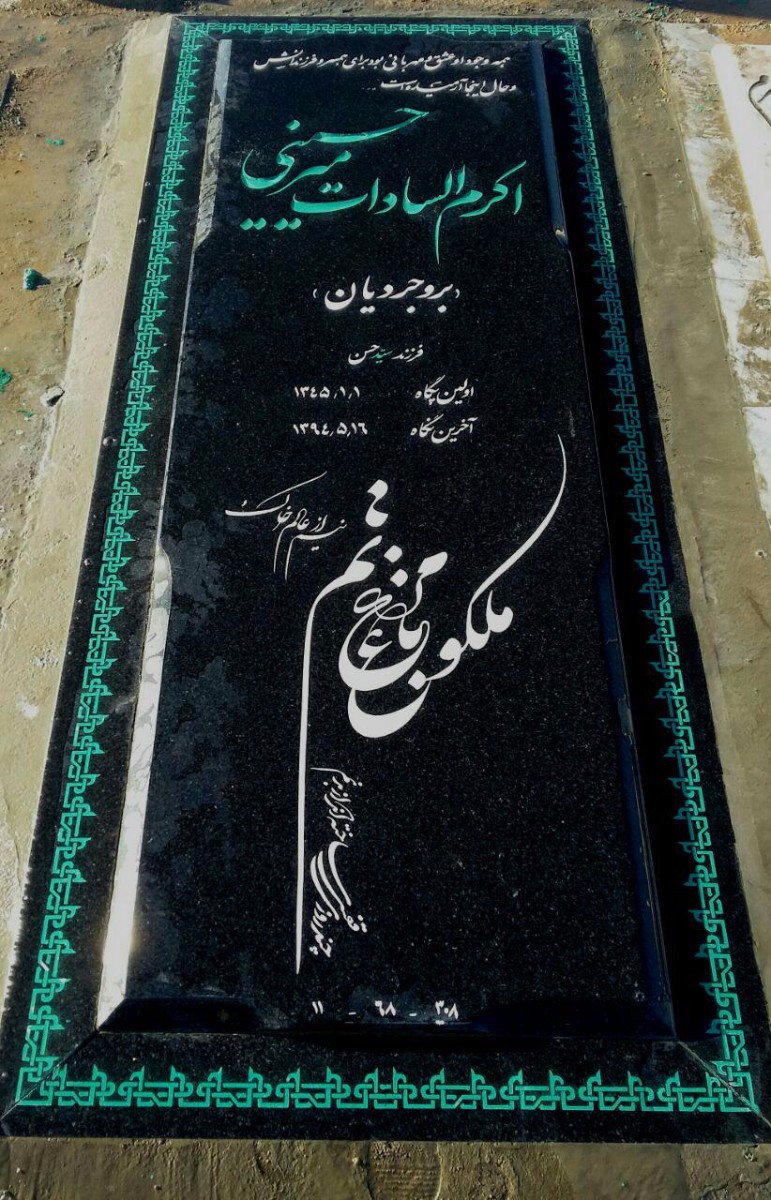 همه وجود او عشق و مهربانی بود برای همسر و فرزندانش
و حال اینجا آرمیده است ...
اکرم السادات میرحسینی
(بروجردیان)
فرزند سیدحسن
اولین پگاه ۱۳۴۵٫۱٫۱
آخرین نگاه ۱۳۹۴٫۵٫۱۶
مرغ باغ ملکوتم
نیم از عالم خاک
چند روزی قفسی ساخته‌اند از بدنم
۳۰۸ - ۶۸ - ۱۱